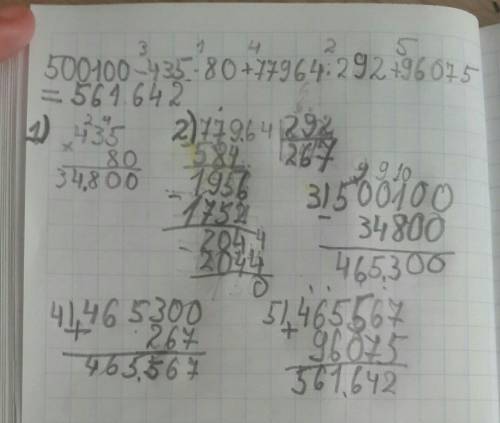 3 1 4 2 5
500100-435·80+77964:292+96075
=561.642
1) 2 4
× 435
80
34.800
2) 779.64 | 292
584 | 267
- 1956
1752
- 2044
2044
0
9 9 10
3) 500100
- 34800
465.300
4) 465300
+ 267
465.567
5) 465567
+ 96075
561.642